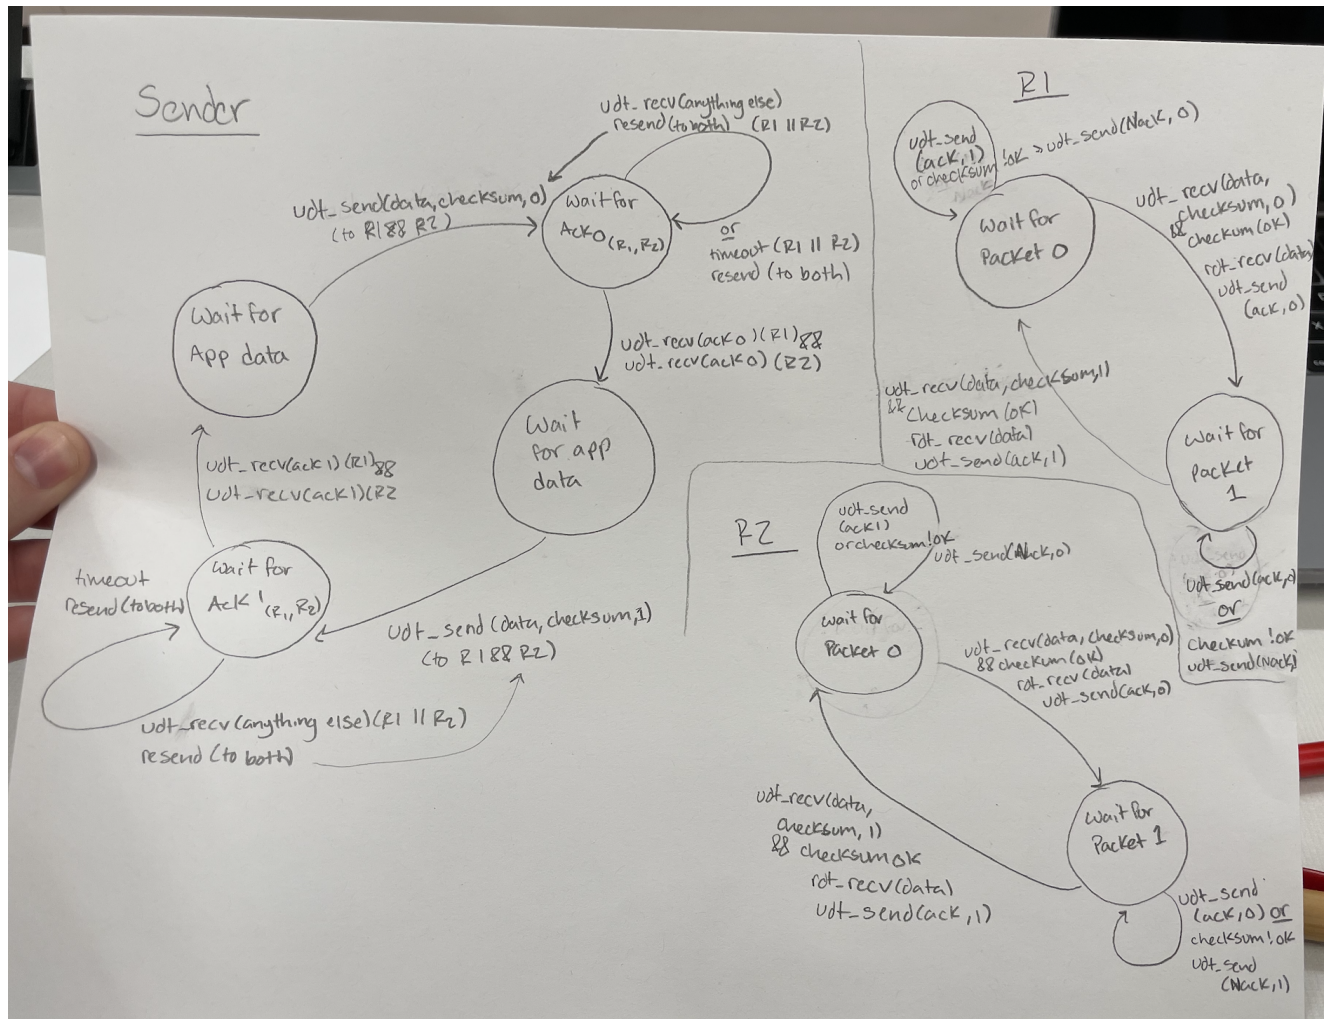 Sender
udt_recv(anything else)
resend(to both) (R1 || R2)
udt_send(data,checksum,0)
(to R1 && R2)
Wait for
Ack0 (R1, R2)
or
timeout (R1 || R2)
resend (to both)
Wait for
App data
udt_recv(ack0)(R1)&&
udt_recv(ack0) (R2)
Wait
for app
data
udt_recv(ack1)(R1)&&
udt_recv(ack1)(R2
timeout
resend(to both)
Wait for
Ack 1 (R1, R2)
udt_send(data,checksum,1)
(to R1 && R2)
udt_recv(anything else)(R1 || R2)
resend (to both)
R1
udt_send
(ack,1)
or checksum !ok > udt_send(Nack,0)
Wait for
Packet 0
udt_recv(data,
checksum,0)
&& checkum(ok)
rdt_recv(data)
udt_send
(ack,0)
udt_recv(data,checksum,1)
&& checksum(ok)
rdt_recv(data)
udt_send(ack,1)
Wait for
Packet
1
udt_send(ack,0)
or
checkum !ok
udt_send(Nack)
R2
udt_send
(ack1)
or checksum !ok
udt_send(Nack,0)
Wait for
Packet 0
udt_recv(data,checksum,0)
&& checkum(ok)
rdt_recv(data)
udt_send(ack,0)
udt_recv(data,
checksum, 1)
&& checksum ok
rdt_recv(data)
udt_send(ack,1)
Wait for
Packet 1
udt_send
(ack,0) or
checksum !ok
udt_send
(Nack,1)